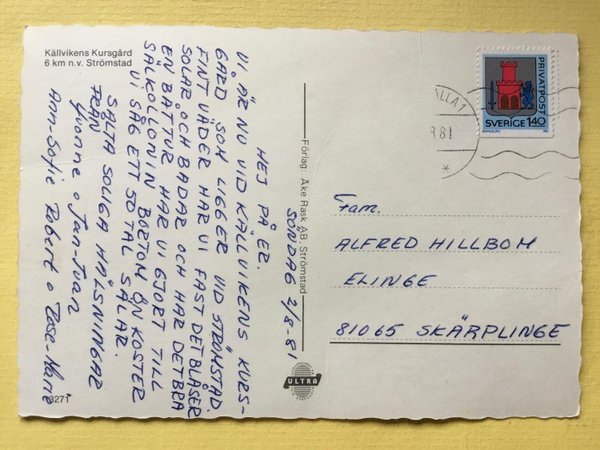 Källvikens Kursgård
6 km n.v. Strömstad
SÖNDAG 2/8-81
HEJ PÅ ER.
VI ÄR NU VID KÄLLVIKENS KURS-
GÅRD SOM LIGGER VID STRÖMSTAD.
FINT VÄDER HAR VI FAST DET BLÅSER
SOLAR OCH BADAR OCH HAR DET BRA
EN BÅTTUR HAR VI GJORT TILL
SÄLKOLONIN BORTOM ÖN KOSTER
VI SÅG ETT 50 TAL SÄLAR.
SALTA SOLIGA HÄLSNINGAR
FRÅN
Yvonne o Jan-Ivan
Ann-Sofie Robert o Rose-Marie
Förlag: Åke Rask AB, Strömstad
ULTRA
3271
LLA 1
8.81
PRIVATPOST
SVERIGE 140
Fam.
ALFRED HILLBOM
ELINGE
81065 SKÄRPLINGE